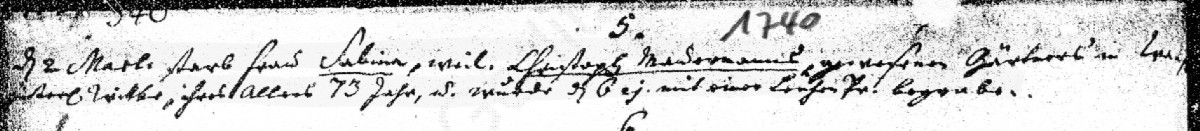 5. 1740
d 2 Martii starb Frau Sabina, weil. Christoph Madermanns, gewesenen Gärtners in
hinterl. Witbe, ihres Alters 73 Jahr, u. wurde d 6 ej. mit einer LeichPr. begraben.